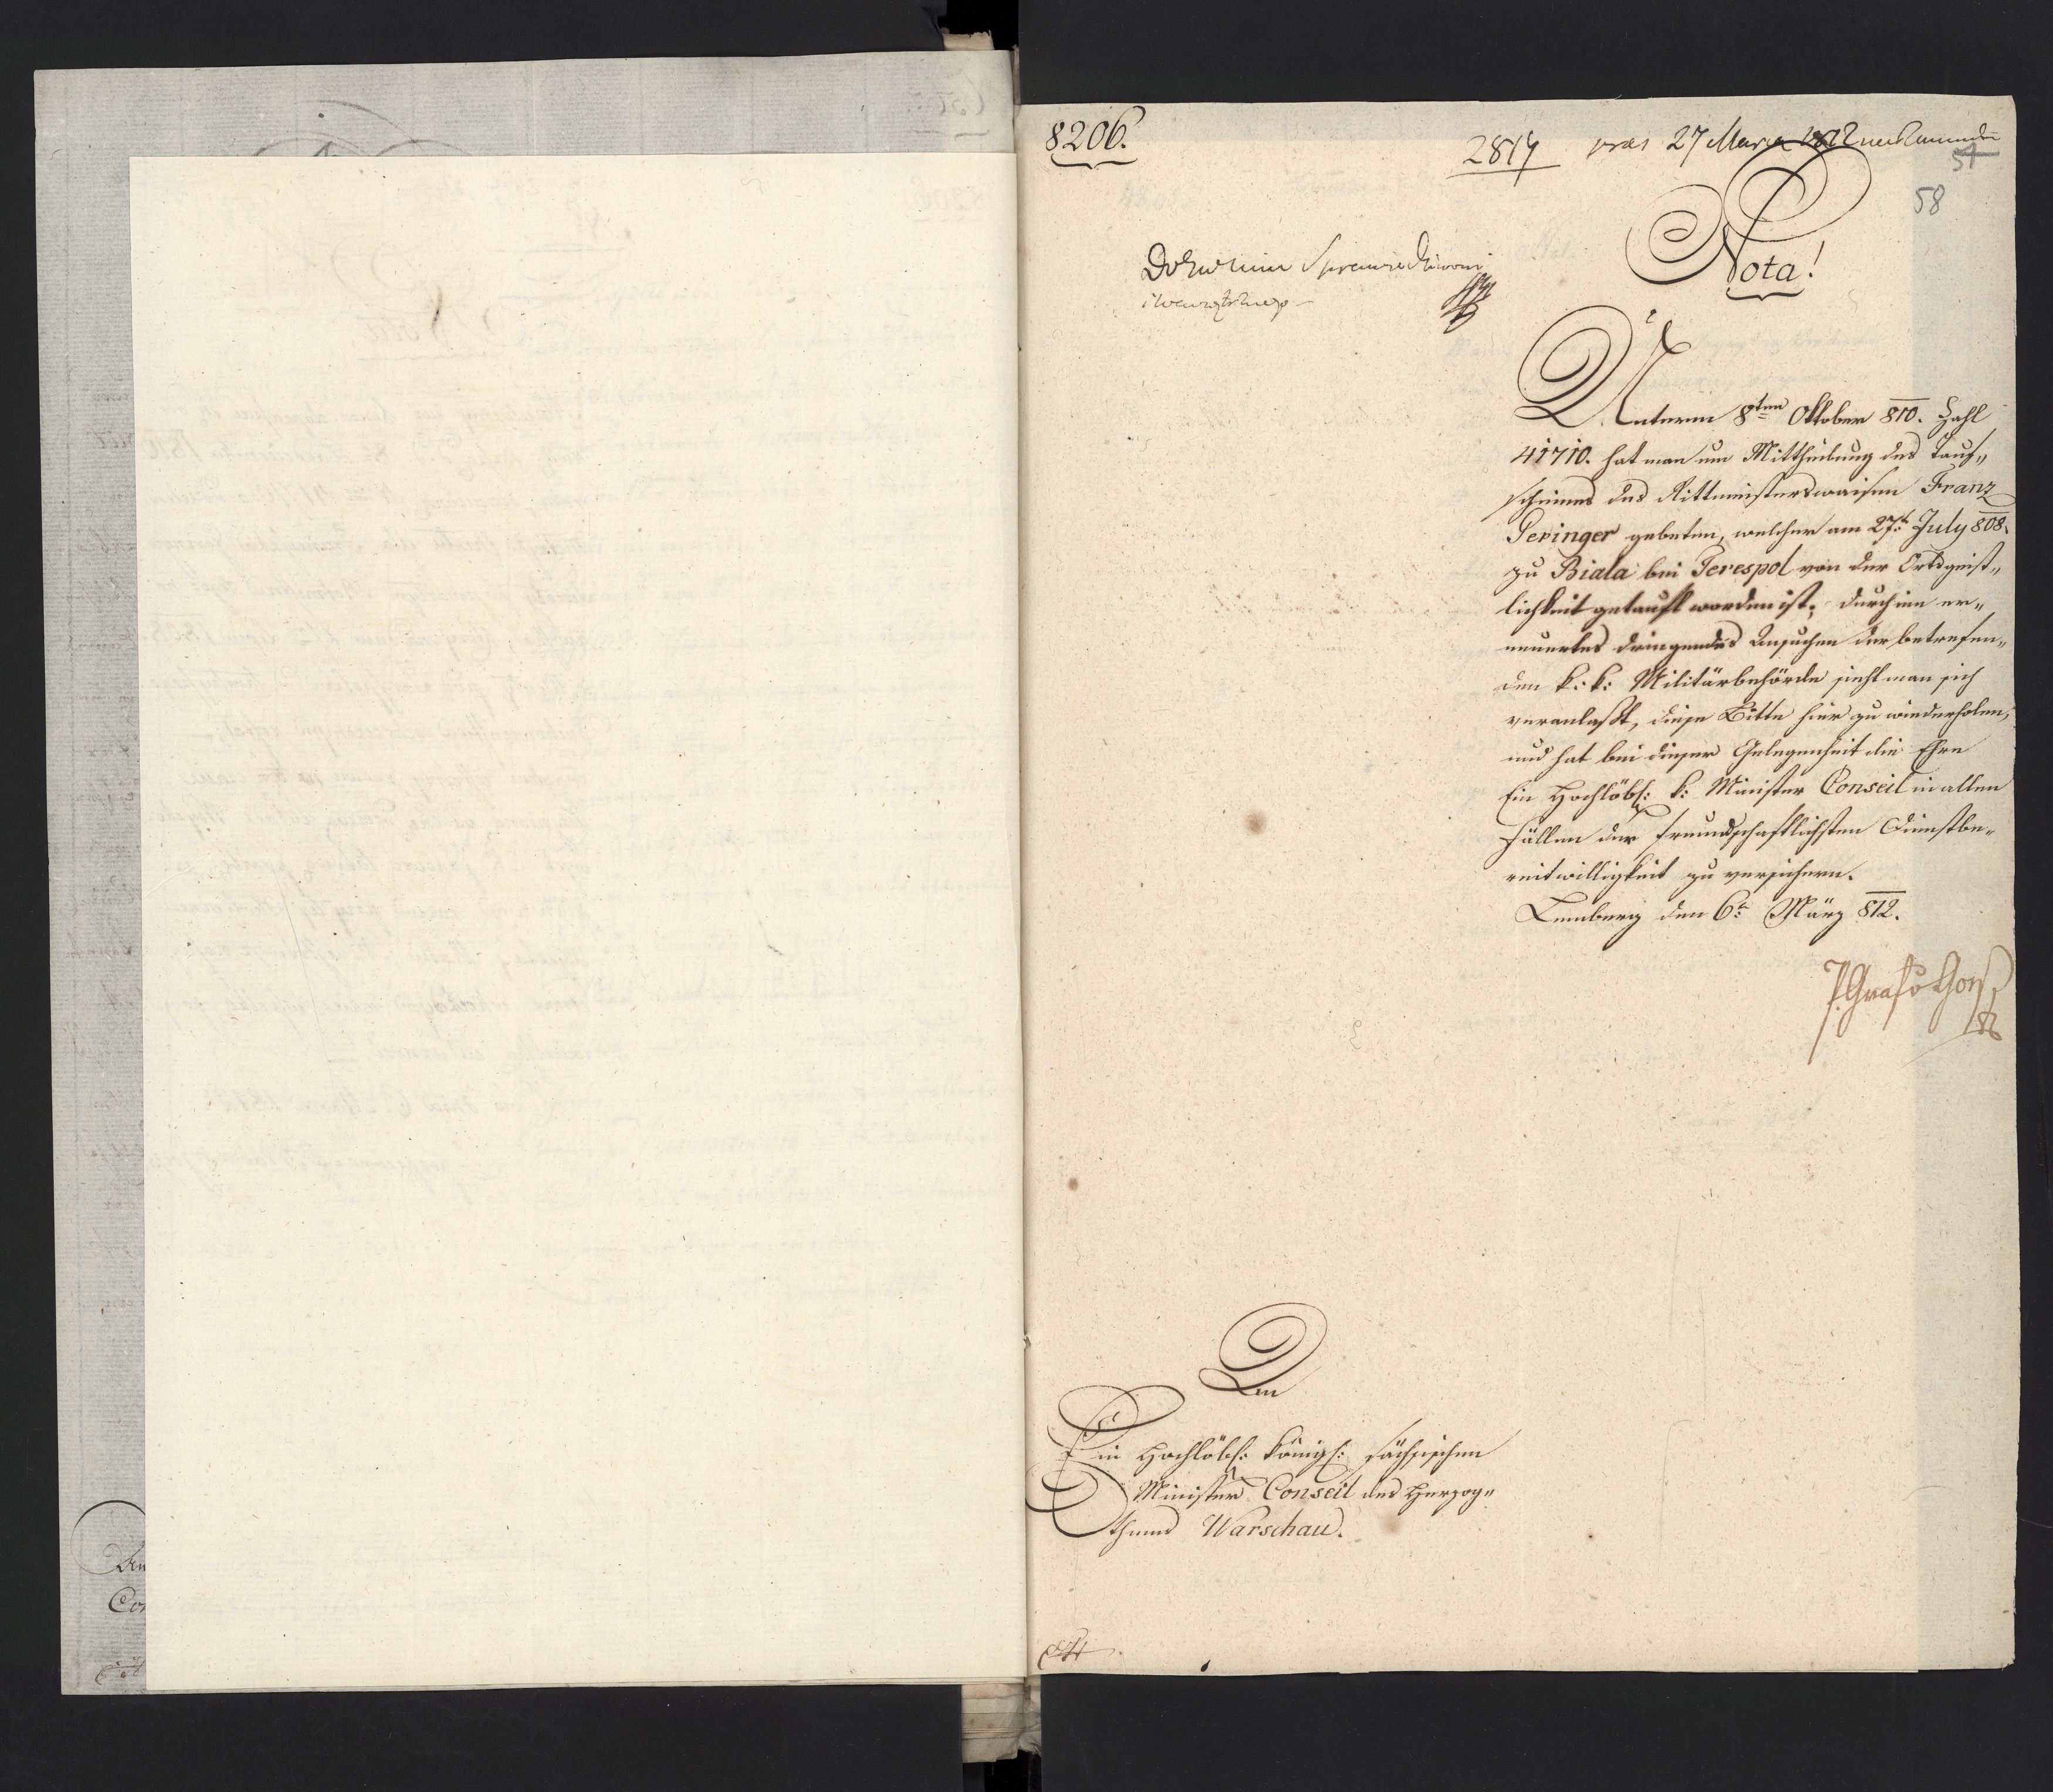 8206.
2814 pres 27 Marca 1812
54
58
Nota!
Unterm 8ten Oktober 810. Zahl
41710. hat man um Mittheilung des Tauf„
scheines des Rittmeisterswaisen Franz
Geringer gebeten, welcher am 27t. July 808.
zu Biala bei Terespol von der Ortsgeist„
lichkeit getauft worden ist; durch ein er„
neuertes dringendes Ansuchen der betrefen„
den k: k: Militärbehörde sieht man sich
veranlaßt, diese Bitte hier zu wiederholen,
und hat bei dieser Gelegenheit die Ehre
Ein Hochlöbl: k: Minister Conseil in allen
Fällen der freundschaftlichsten Dienstbe„
reitwilligkeit zu versichern.
Lemberg den 6t. März 812.
An
Ein Hochlöbl: königl: sächsischen
Minister Conseil des Herzog„
thums Warschau.